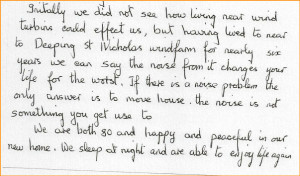 Initally we did not see how living near wind
turbins could effect us, but having lived to near
to Deeping St Nicholas windfarm for nearly six
years we can say the noise from it changes your
life for the worst. If there is a noise problem the
only answer is to move house. the noise is not
something you get use to
We are both 80 and happy and peaceful in our
new home. We sleep at night and are able to enjoy life again